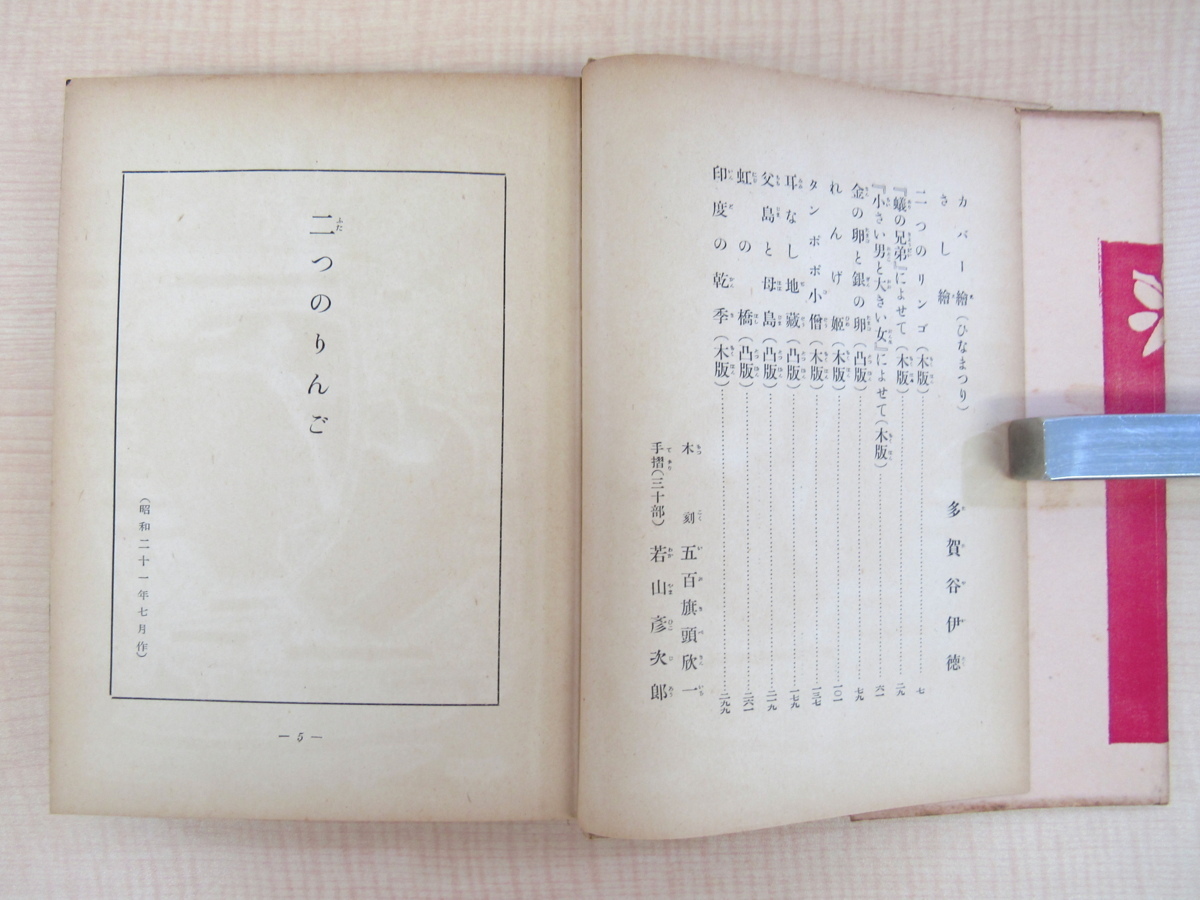 カバー繪(ひなまつり)
さし繪
多賀谷伊德
二つのリンゴ(木版)……七
『蟻の兄弟』によせて(木版)……二九
『小さい男と大きい女』によせて(木版)……六一
金の卵と銀の卵(凸版)……七九
れんげ姬(木版)……一〇一
タンポポ小僧(木版)……一三七
耳なし地藏(凸版)……一七九
父島と母島(凸版)……二一九
虹の橋(凸版)……二六一
印度の乾季(木版)……二九九
木刻 五百旗頭欣一
手摺(三十部) 若山彥次郎
二つのりんご
(昭和二十一年七月作)
— 5 —